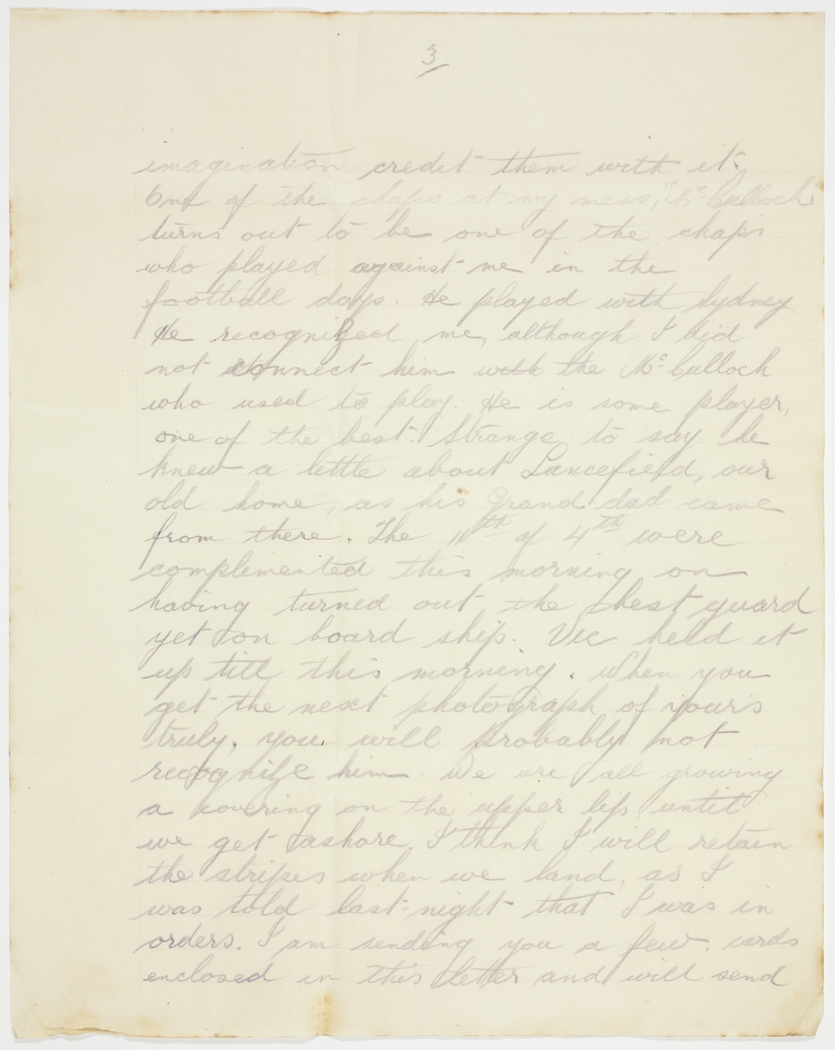 3
imagination credit them with it.
One of the chaps at my mess, "McCulloch"
turns out to be one of the chaps
who played against me in the
football days. He played with Sydney
He recognized me, although I did
not connect him with the McCulloch
who used to play. He is some player,
one of the best. Strange to say he
knew a little about Lancefield, our
old home, as his Grand dad came
from there. The 11th of 4th were
complimented this morning on
having turned out the best guard
yet on board ship. Vic held it
up till this morning. When you
get the next photograph of yours
truly, you will probably not
recognize him. We are all growing
a covering on the upper lip until
we get ashore. I think I will retain
the stripes when we land, as I
was told last night that I was in
orders. I am sending you a few cards
enclosed in this letter and will send